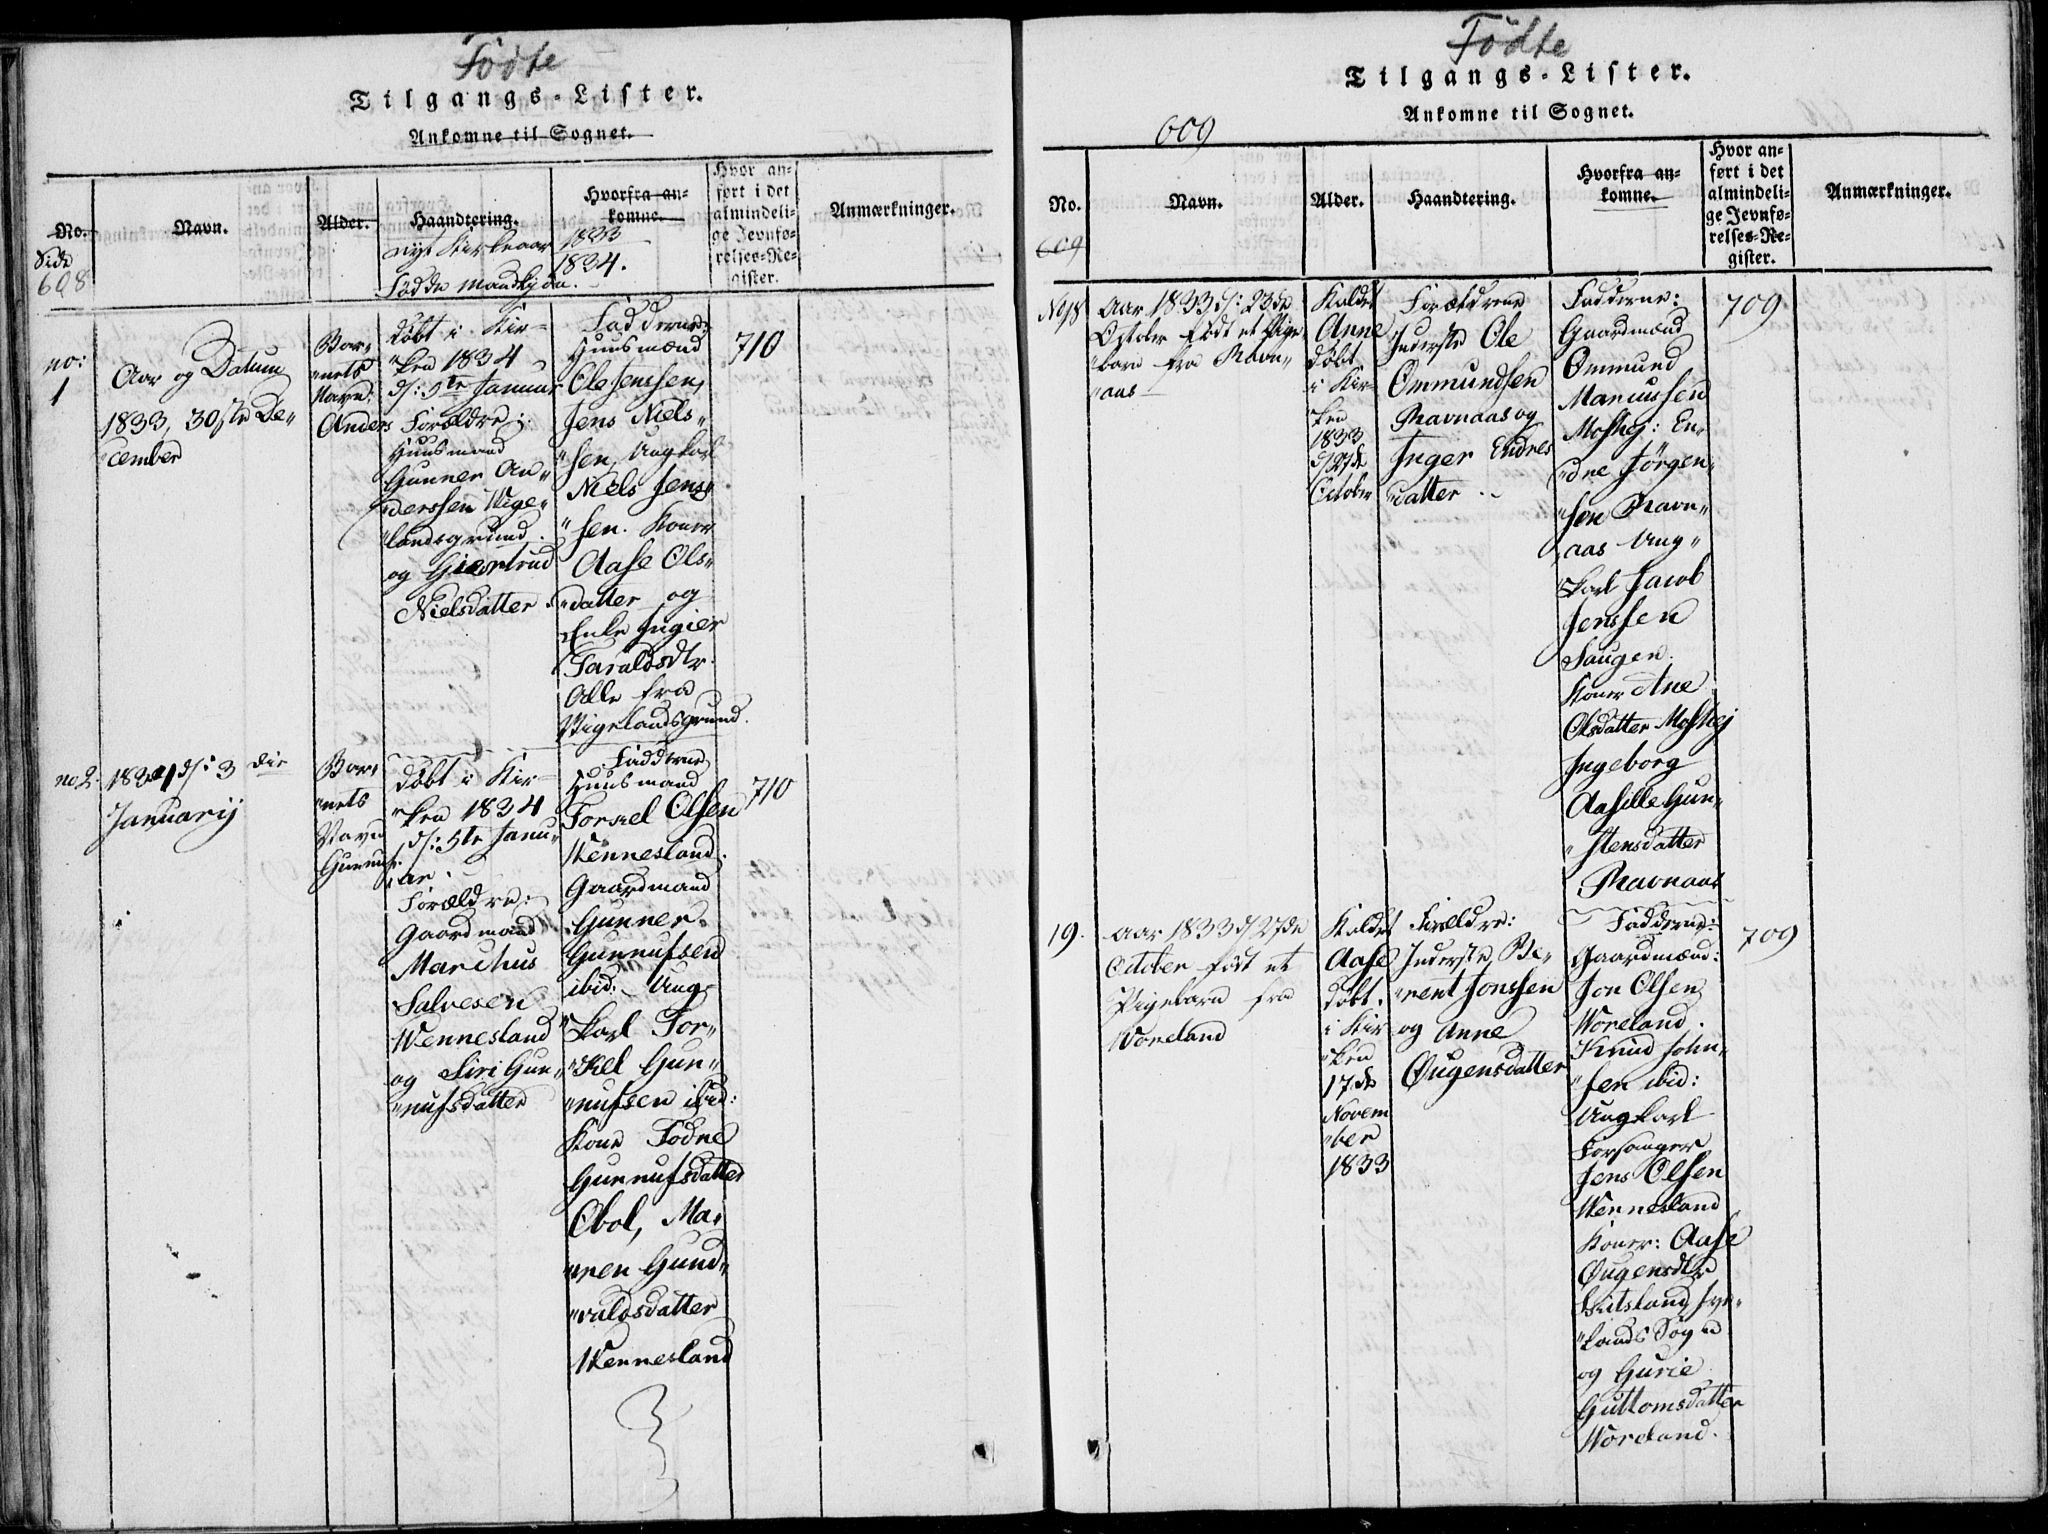 Födte
Tilgangs-Lister.
Ankomne til Sognet.
No.
Navn.
Alder.
Haandtering.
Hvorfra an-
komne.
Hvor an-
ført i det
almindeli-
ge Jevnfø-
relses-Re-
gister.
Anmærkninger.
Side
608
nyt Kirkeaar 1833
1834.
Födde Mandkjön.
no:
1
Aar og Datum
1833, 30fte De„
„cember
Bar„
„nets
Navn:
Anders
döbt i Kir„
„ken 1834
d: 5te Januar
Forældre:
Huusmand
Gunner An„
„derssen Wige„
„landsgrund.
og Giertrud
Nielsdatter.
Faddere:
Huusmænd
Ole Jenssen,
Jens Niels„
„sen, Ungkarl
Niels Jens„
„sen. Koner
Aase Ols„
„datter og
Enke Ingier
Taraldsdtr.
Alle fra
Wigelandsgrund.
710
no 2.
1834 d: 3die
Januarij
Bar„
„nets
Navn
Gunnuf.
döbt i Kir„
„ken 1834
d: 5te Janu„
„ar.
Forældre:
Gaardmand
Marchus
Salvesen
Wennesland
og Siri Gun„
„nufsdatter
Fadderne
Huusmand
Torkel Olsen
Wennesland.
Gaardmand
Gunner
Gunnufsen
ibid: Ung„
„karl Tor„
„kel Gun„
„nufsen ibid:
Kone Todne
Gunnufsdatter
Obol, Ma„
„ren Gund„
„valdsdatter
Wennesland
710
Födte
Tilgangs-Lister.
Ankomne til Sognet.
609
No.
Navn.
Alder.
Haandtering.
Hvorfra an-
komne.
Hvor an-
ført i det
almindeli-
ge Jevnfø-
relses-Re-
gister.
Anmærkninger.
609
No 18
Aar 1833 d: 23de
October födt et Pige„
„barn fra Ravn„
„aas
Kaldet
Anne
döbt
i Kir„
„ken
1833
d/27de
October
Forældrene
Inderste Ole
Ommundsen
Ravnaas og
Inger Endres
„datter
Fadderne:
Gaardmænd
Ommund
Marcussen
Moshej: En„
„dre Jörgen„
„sen Ravn„
„aas Ung„
„karl Jacob
Jenssen
Haugen.
Koner Ane
Olsdatter Moshej
Ingeborg
Aasille Gun„
„stensdatter
Ravnaas
709
19.
Aar 1833 d/27de
October födt et
Pigebarn fra
Woreland
Kaldet
Aase
döbt
i Kir
„ken
17de
Novem
„ber
1833
Forældre:
Inderste Be„
„rent Jonssen
og Anne
Øugensdatter
Fadderne:
Gaardmænd:
Jon Olsen
Woreland.
Knud John„
„sen ibid:
Ungkarl
Forsanger
Jens Olsen
Wennesland
Koner: Aase
Øugensdtr
„lands Sogn
og Gurie
Guttomsdatter
Woreland.
709